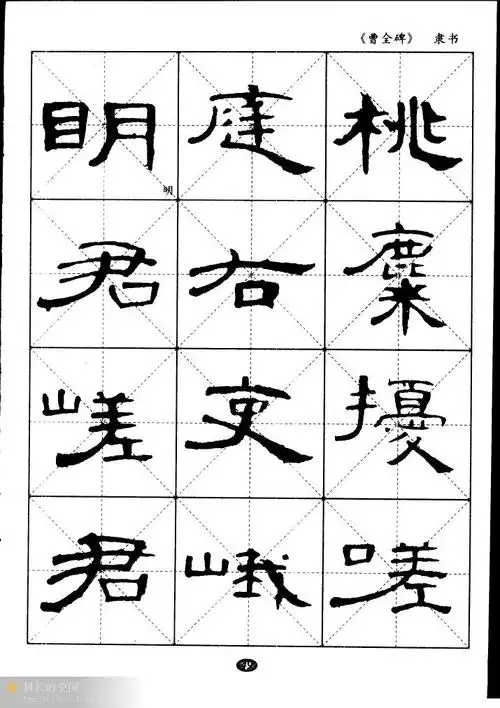 《曹全碑》 隶书
桃麋擾嗟
庭右吏峨
明君嵯君
明
的空间